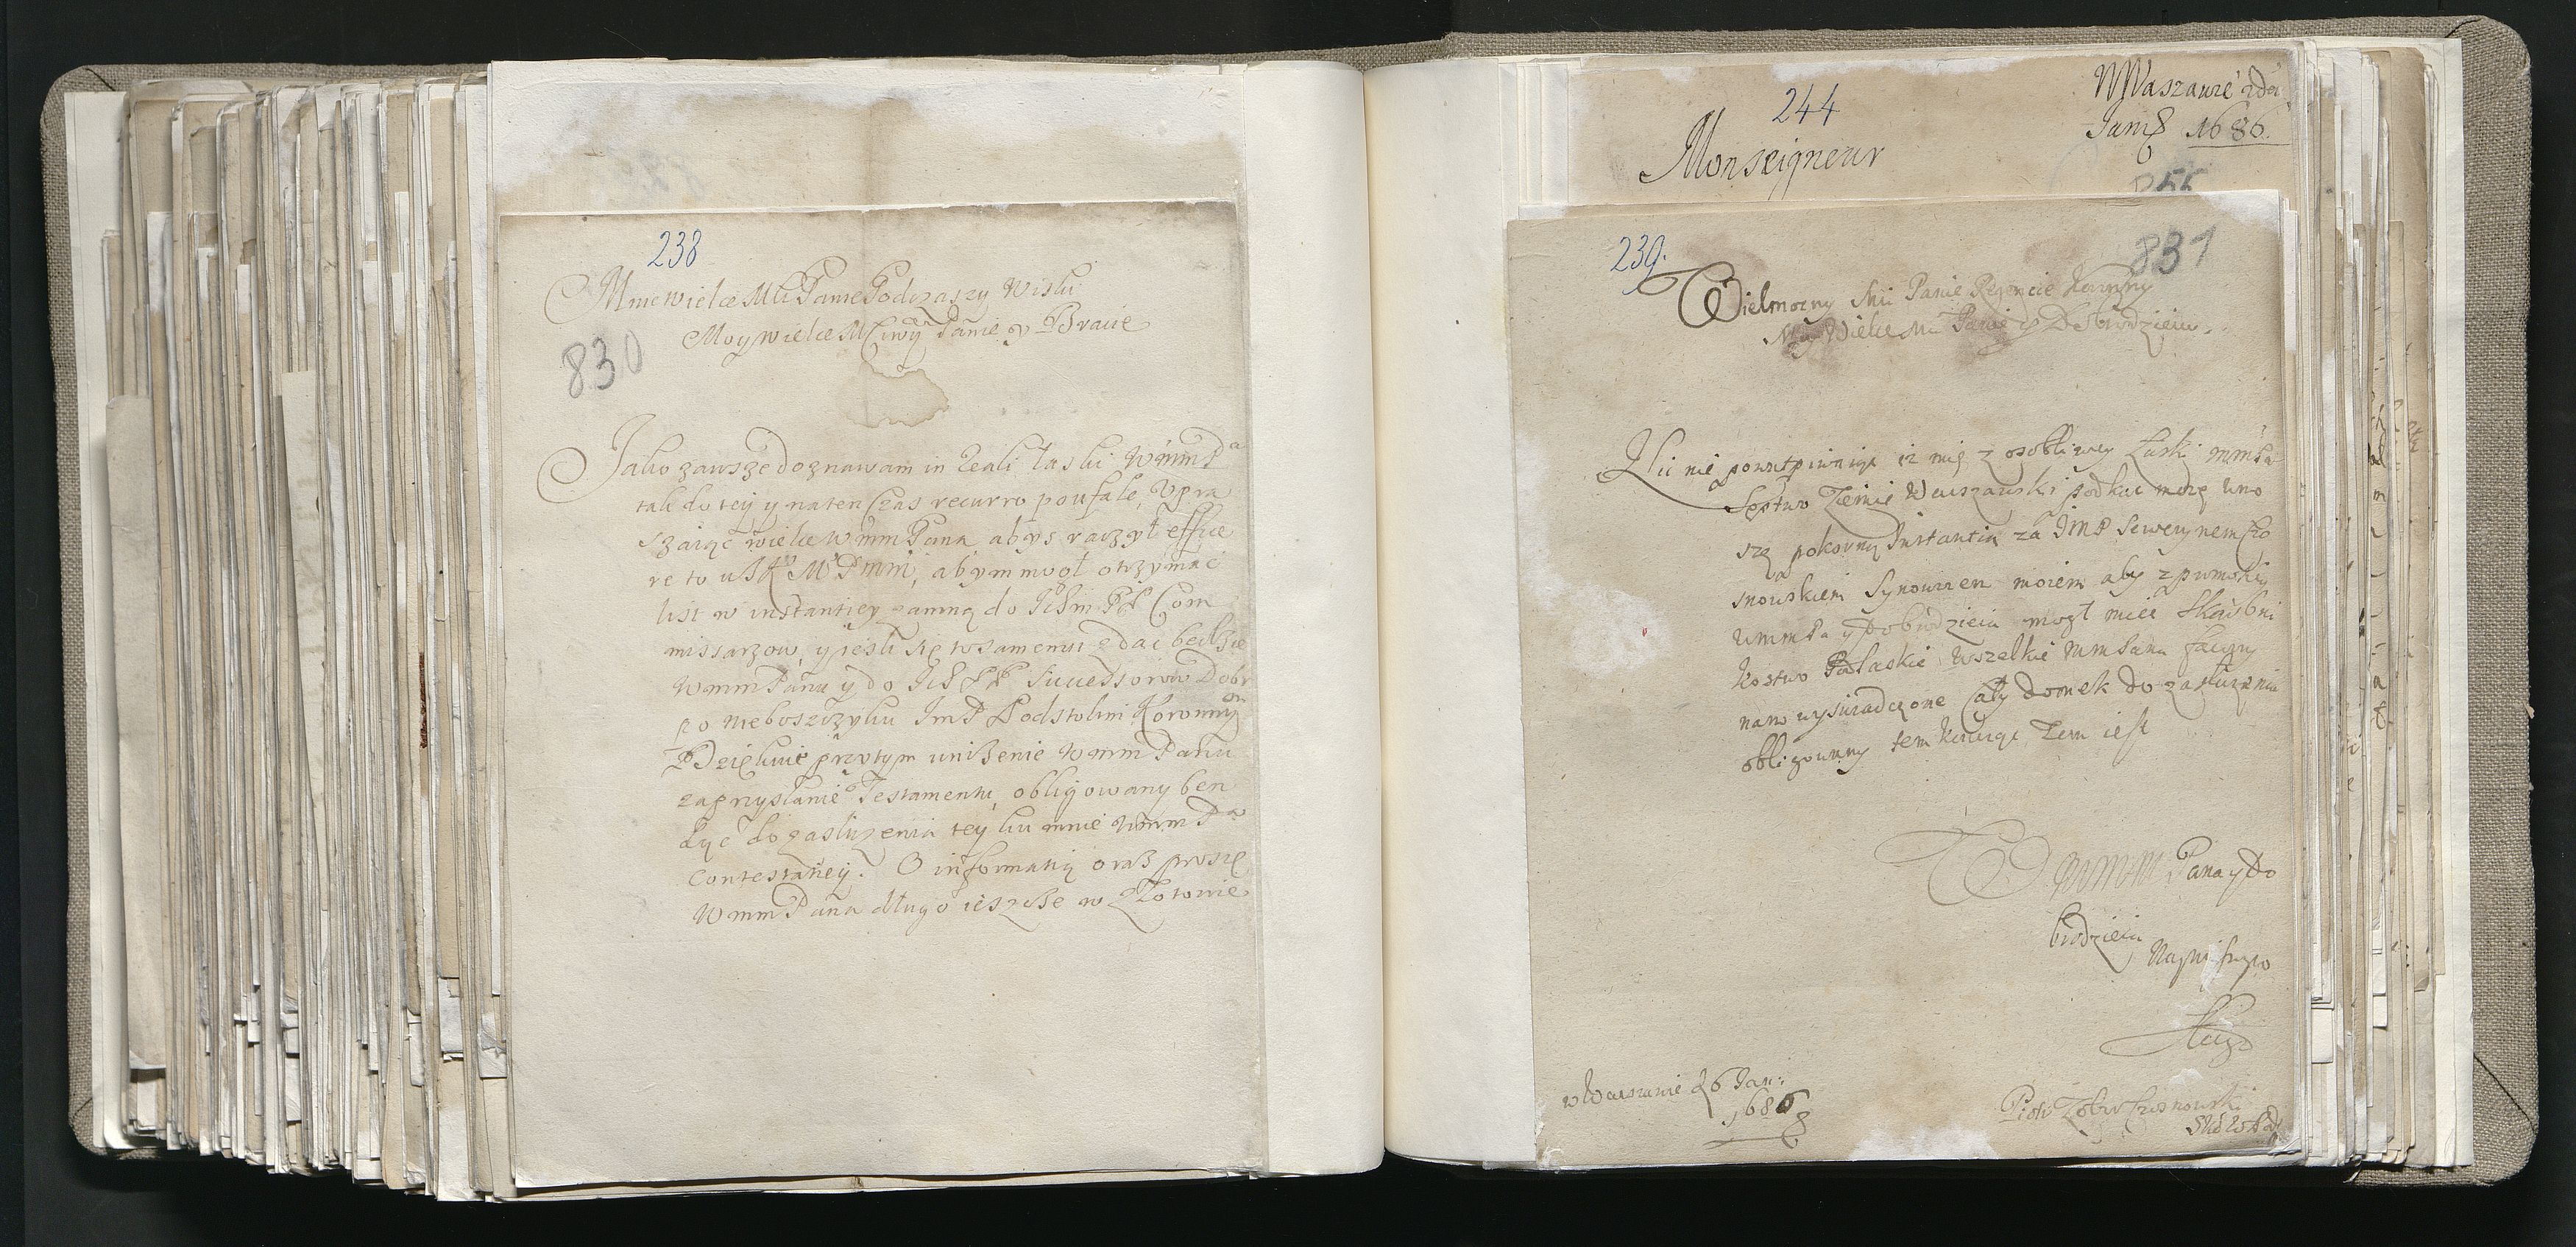 238
Mnie wielce Mci Panie Podczaszy Wiski
Moy wielce Mciwy Panie y Bracie
830
Jako zawsze doznawam in reali łaski WmmPa
tak do tey y na ten czas recurro poufale, Upra
szaiąc wielce WmmPana abys raczył effice
re to u JK Mci PMM, abym mogł otrzymac
list w instantiey za mną do Ichm PP Com
missarzow, y jesli się to samemu zdac będzie
WmmPanu y do Ich PP Successorow Dobr
po nieboszczyku JmP Podstolim Koronnym
Dziękuię przytym uniżenie WmmPanu
za przysłanie Testamentu, obligowany ben
dąc do zasłuzenia tey ku mnie WmmPa
contestatiey. O informatią oraz proszę
WmmPana długo ieszcze w Złotowie
244
W Warszawie
Jan 1686.
Monseigneur
855
239.
831
Wielmozny Mci Panie Regencie Koronny
Moy Wielce Mci Panie y Dobrodzieiu
Nic nie powątpiwaiąc iz mię z osobliwey Łaski
Ziemie Warszawski podkac moze uno
szę pokorną Instantią za JmP Sewerynem Czo
snowskiem Synowcem moiem aby z pomocy
WmmPa y Dobrodzieia mogł miec Skarbni
kostwo Podlaskie wszelkie mmPana faciory
nam wyswiadczone cały domek do zasłuzenia
obligowany tem kturyi Zem iest
WmmM Pana y Do
brodzieia
Nayniszszo
Sługo
w Warszawie 26 Jan:
1686
Piotr Czosnowski